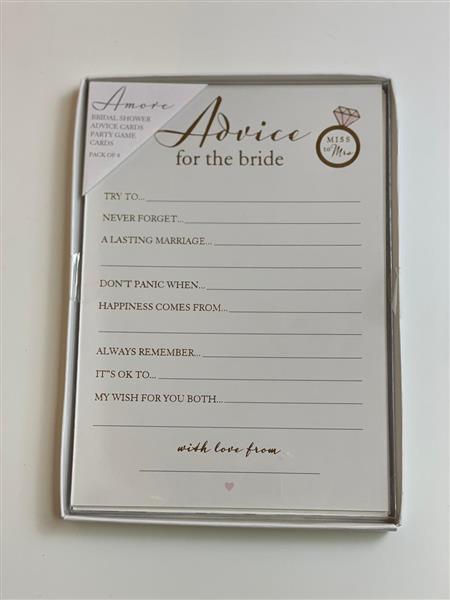 Amore
BRIDAL SHOWER
ADVICE CARDS
PARTY GAME
CARDS
PACK OF 8
Advice
for the bride
MISS
to Mrs
TRY TO...
NEVER FORGET...
A LASTING MARRIAGE...
DON'T PANIC WHEN...
HAPPINESS COMES FROM...
ALWAYS REMEMBER...
IT"S OK TO...
MY WISH FOR YOU BOTH...
with love from